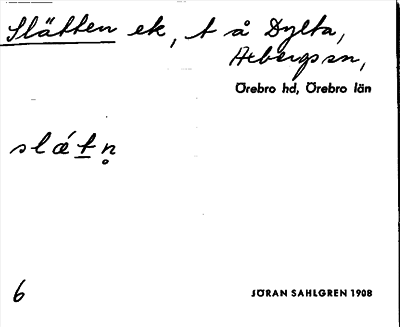 Slätten ek, t å Dylta,
Axbergs sn,
Örebro hd, Örebro län
slæ´tn̥
6
JÖRAN SAHLGREN 1908